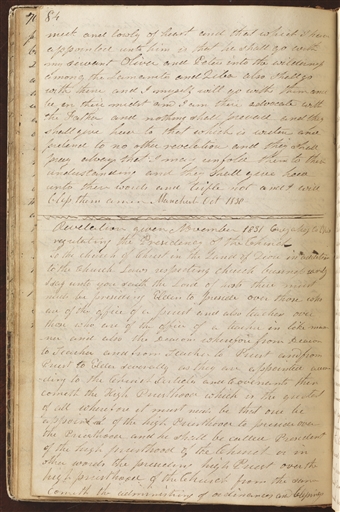 84
meek and lowly of heart and that which I have
appointed unto him is that he shall go with
my servant Oliver and Peter into the wilderness
among the Lamanites and Ziba also shall go
with them and I myself will go with them and
be in their midst and I am their advocate with
the Father and nothing shall prevail and they
shall give heed to that which is written and
pretend to no other revelation and they shall
pray always that I may unfold them to their
understanding and they shall give heed
unto these words and trifle not and I will
bless them amen. Manchester Oct 1830
Revelation given November 1831
regulating the Presidency of the Church
to the church of Christ in the Land of Zion in addition
to the church Laws respecting church business verily
I say unto you saith the Lord of hosts there must
needs be presiding Elders to preside over those who
are of the office of a Priest and also teachers over
those who are of the office of a teacher in like man
ner and also the Deacons wherefore from Deacon
to Teacher and from Teacher to Priest and from
Priest to Elder severally as they are appointed accor
ding to the Church Articles and Covenants then
cometh the high Priesthood which is the greatest
of all wherefore it must needs be that one be
appointed of the high Priesthood to preside over
the Priesthood and he shall be called President
of the high priesthood of the Church or in
other words the presiding high Priest over the
high priesthood of the Church from the same
cometh the administring of ordinances and blessings